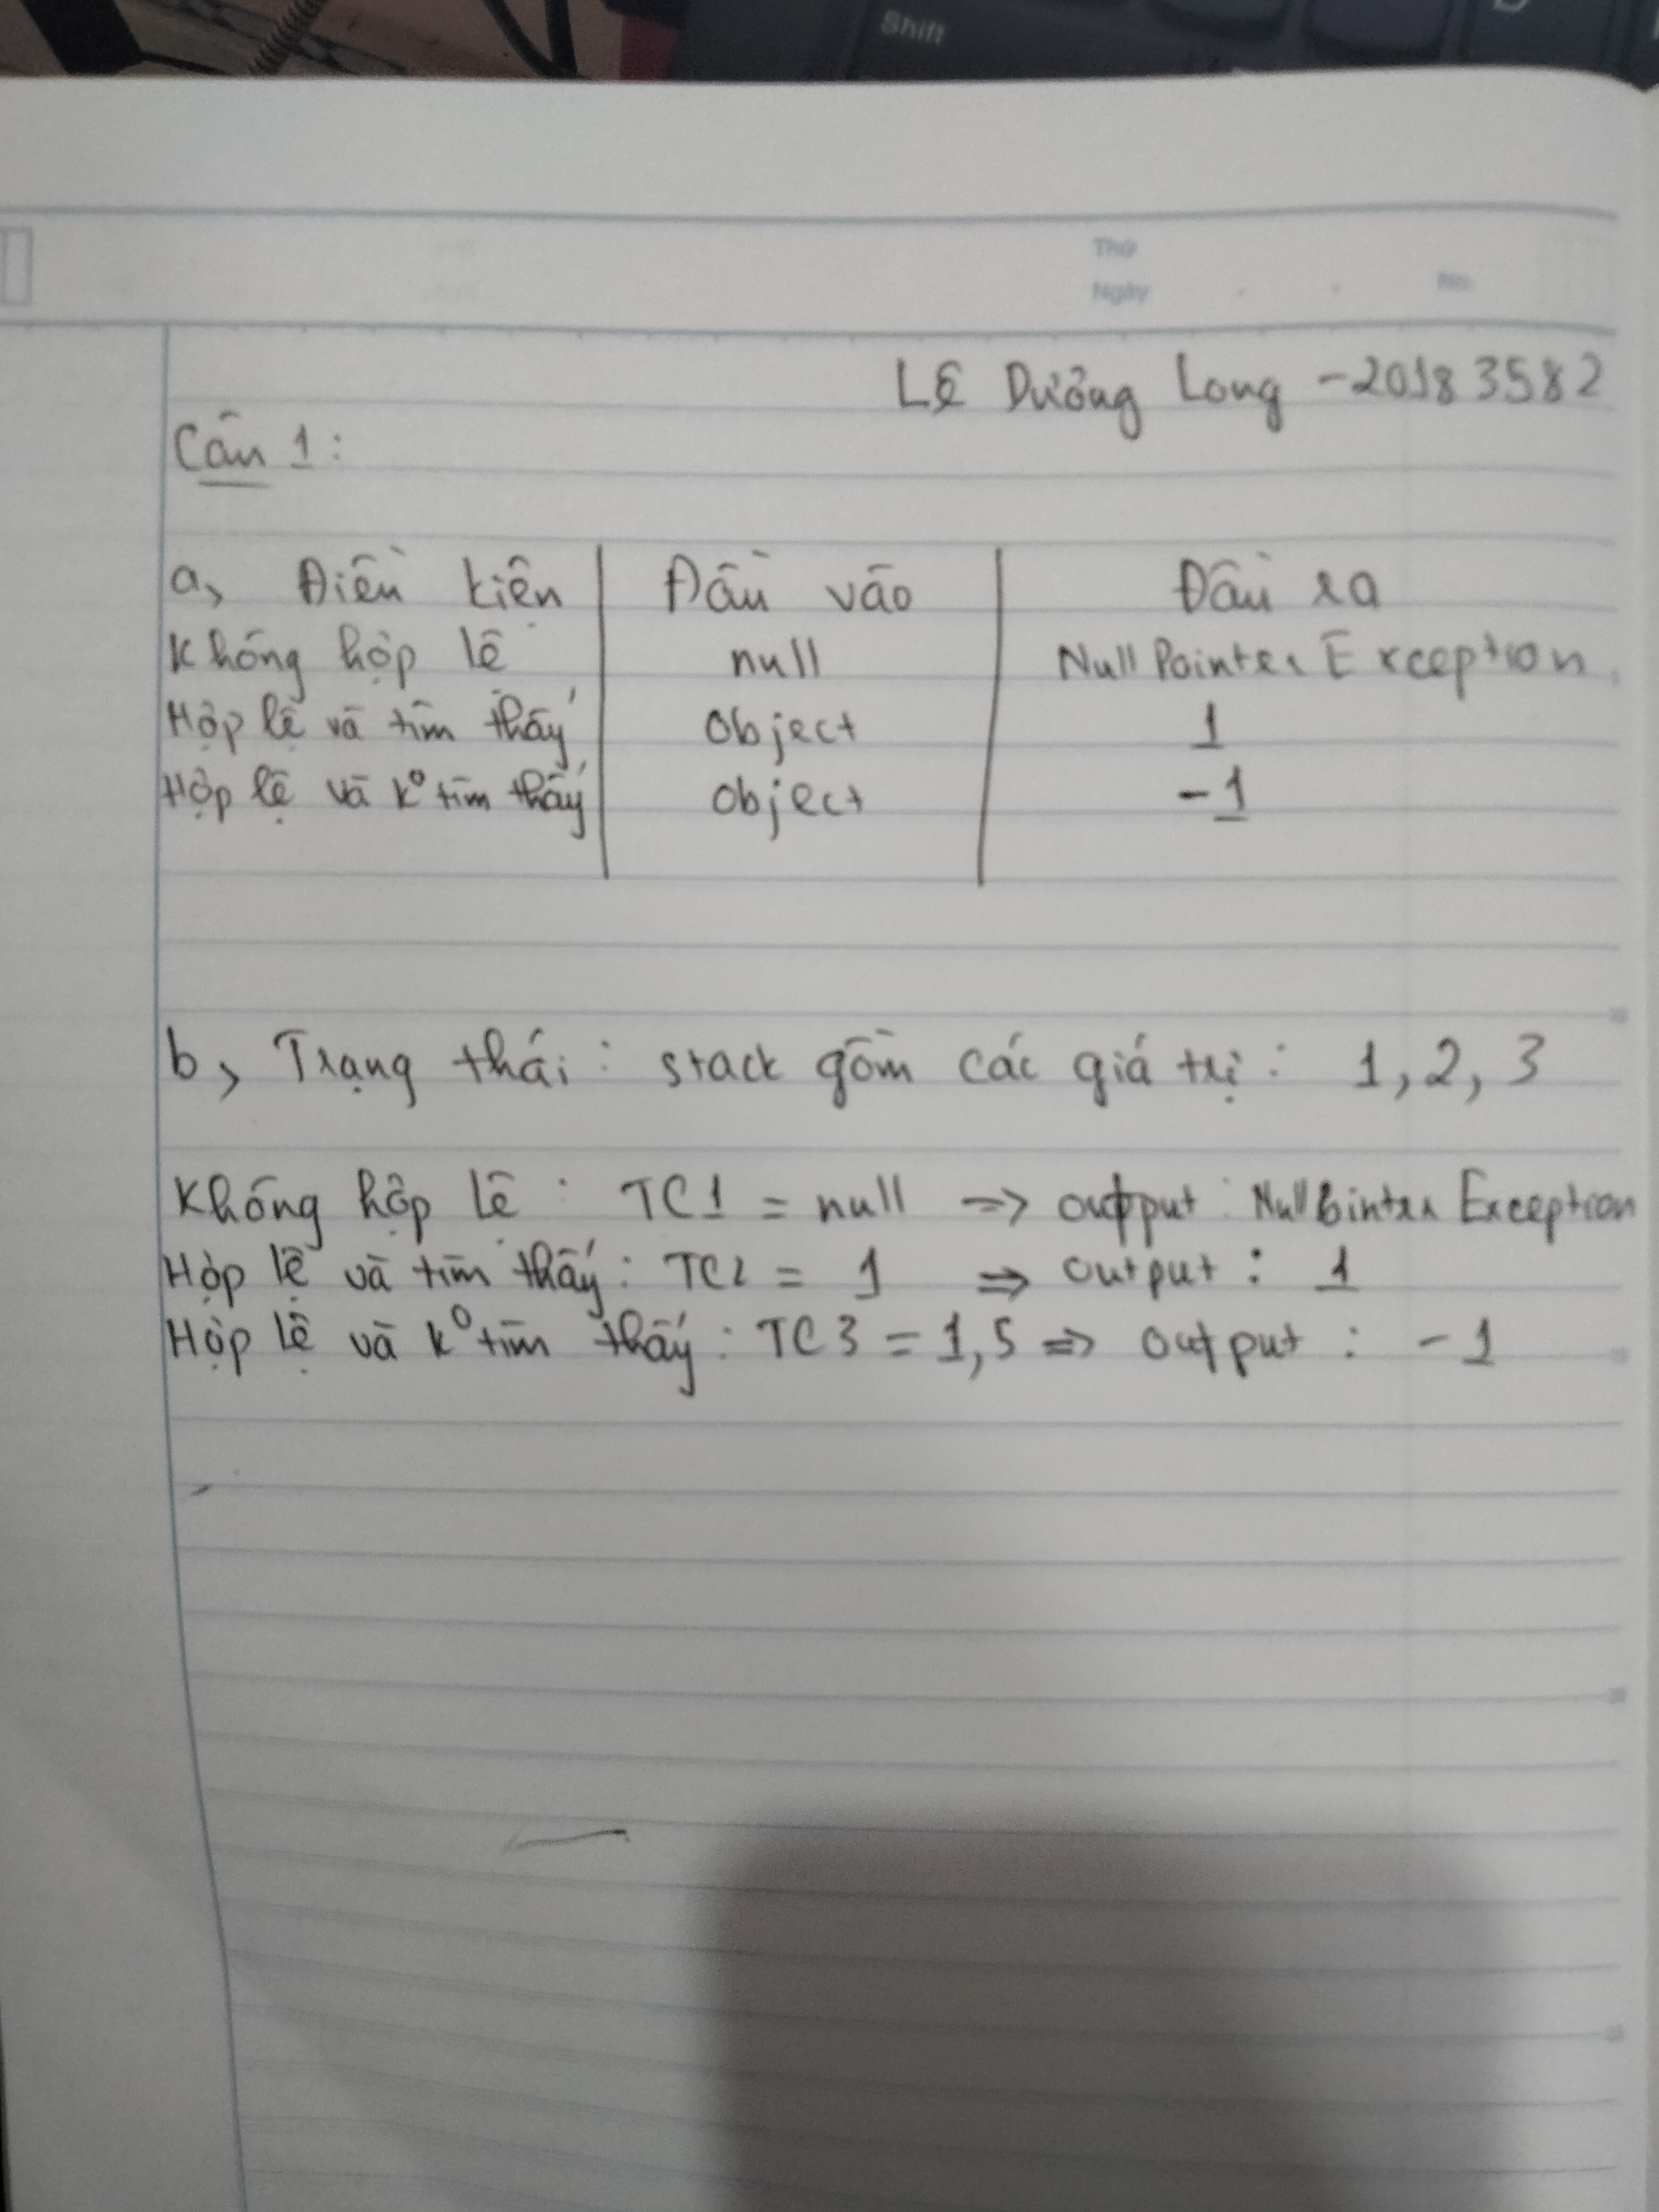 Shift
Thứ
Ngày
No.
Lê Dưỡng Long - 20183582
Câu 1:
a, Điều kiện | Đầu vào | Đầu ra
Không hợp lệ | null | NullPointerException
Hợp lệ và tìm thấy | Object | 1
Hợp lệ và k° tìm thấy | Object | -1
b, Trạng thái: stack gồm các giá trị: 1, 2, 3
Không hợp lệ: TC1 = null => output: NullPointerException
Hợp lệ và tìm thấy: TC2 = 1 => output: 1
Hợp lệ và k° tìm thấy: TC3 = 1,5 => output: -1